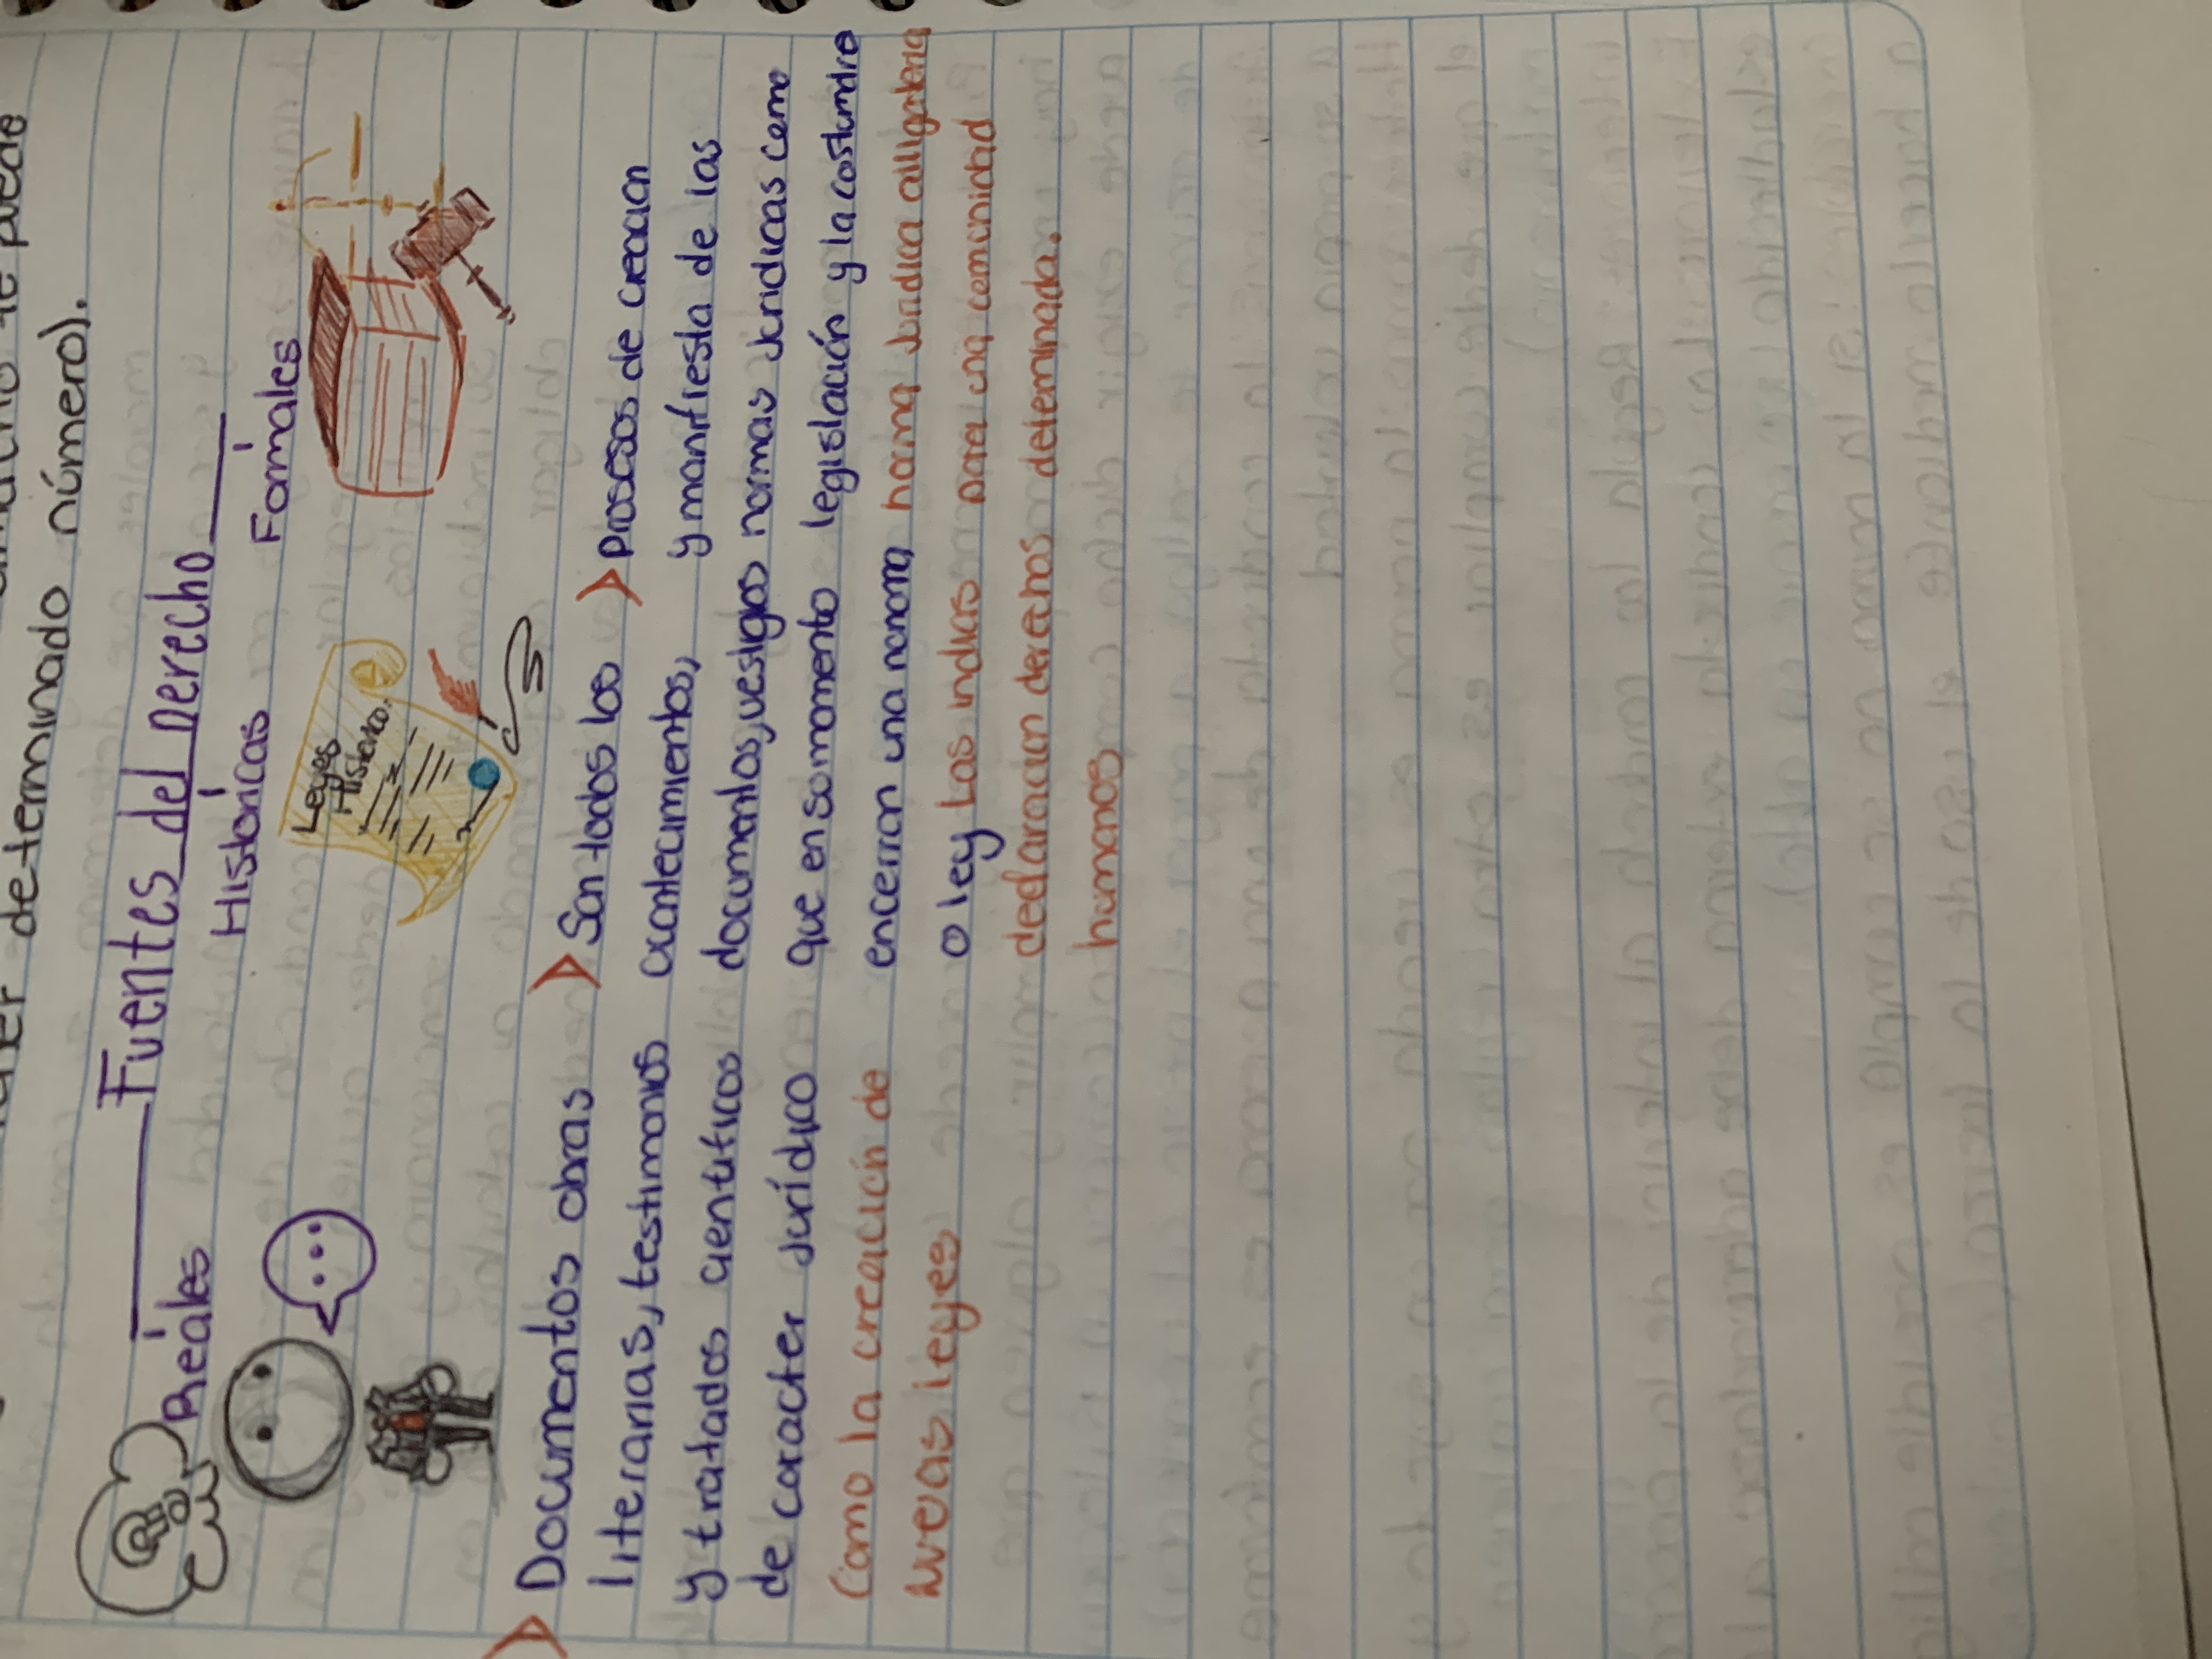 determinado número).
Fuentes del Derecho
Reales
Históricas
Formales
Leyes
Historico.
Documentos obras
literarias, testimonios
y tratados cientificos
de caracter Jurídico
Como la creación de
nuevas leyes
Son todos los
acontecimientos,
documentos, vestigios
que en su momento
encerran una norma
o ley Las indias
declaracion derechos
humanos
Procesos de creacion
y manifiesta de las
normas Juridicas como
legislación y la costumbre
norma Juridica
para una comunidad
determinada.